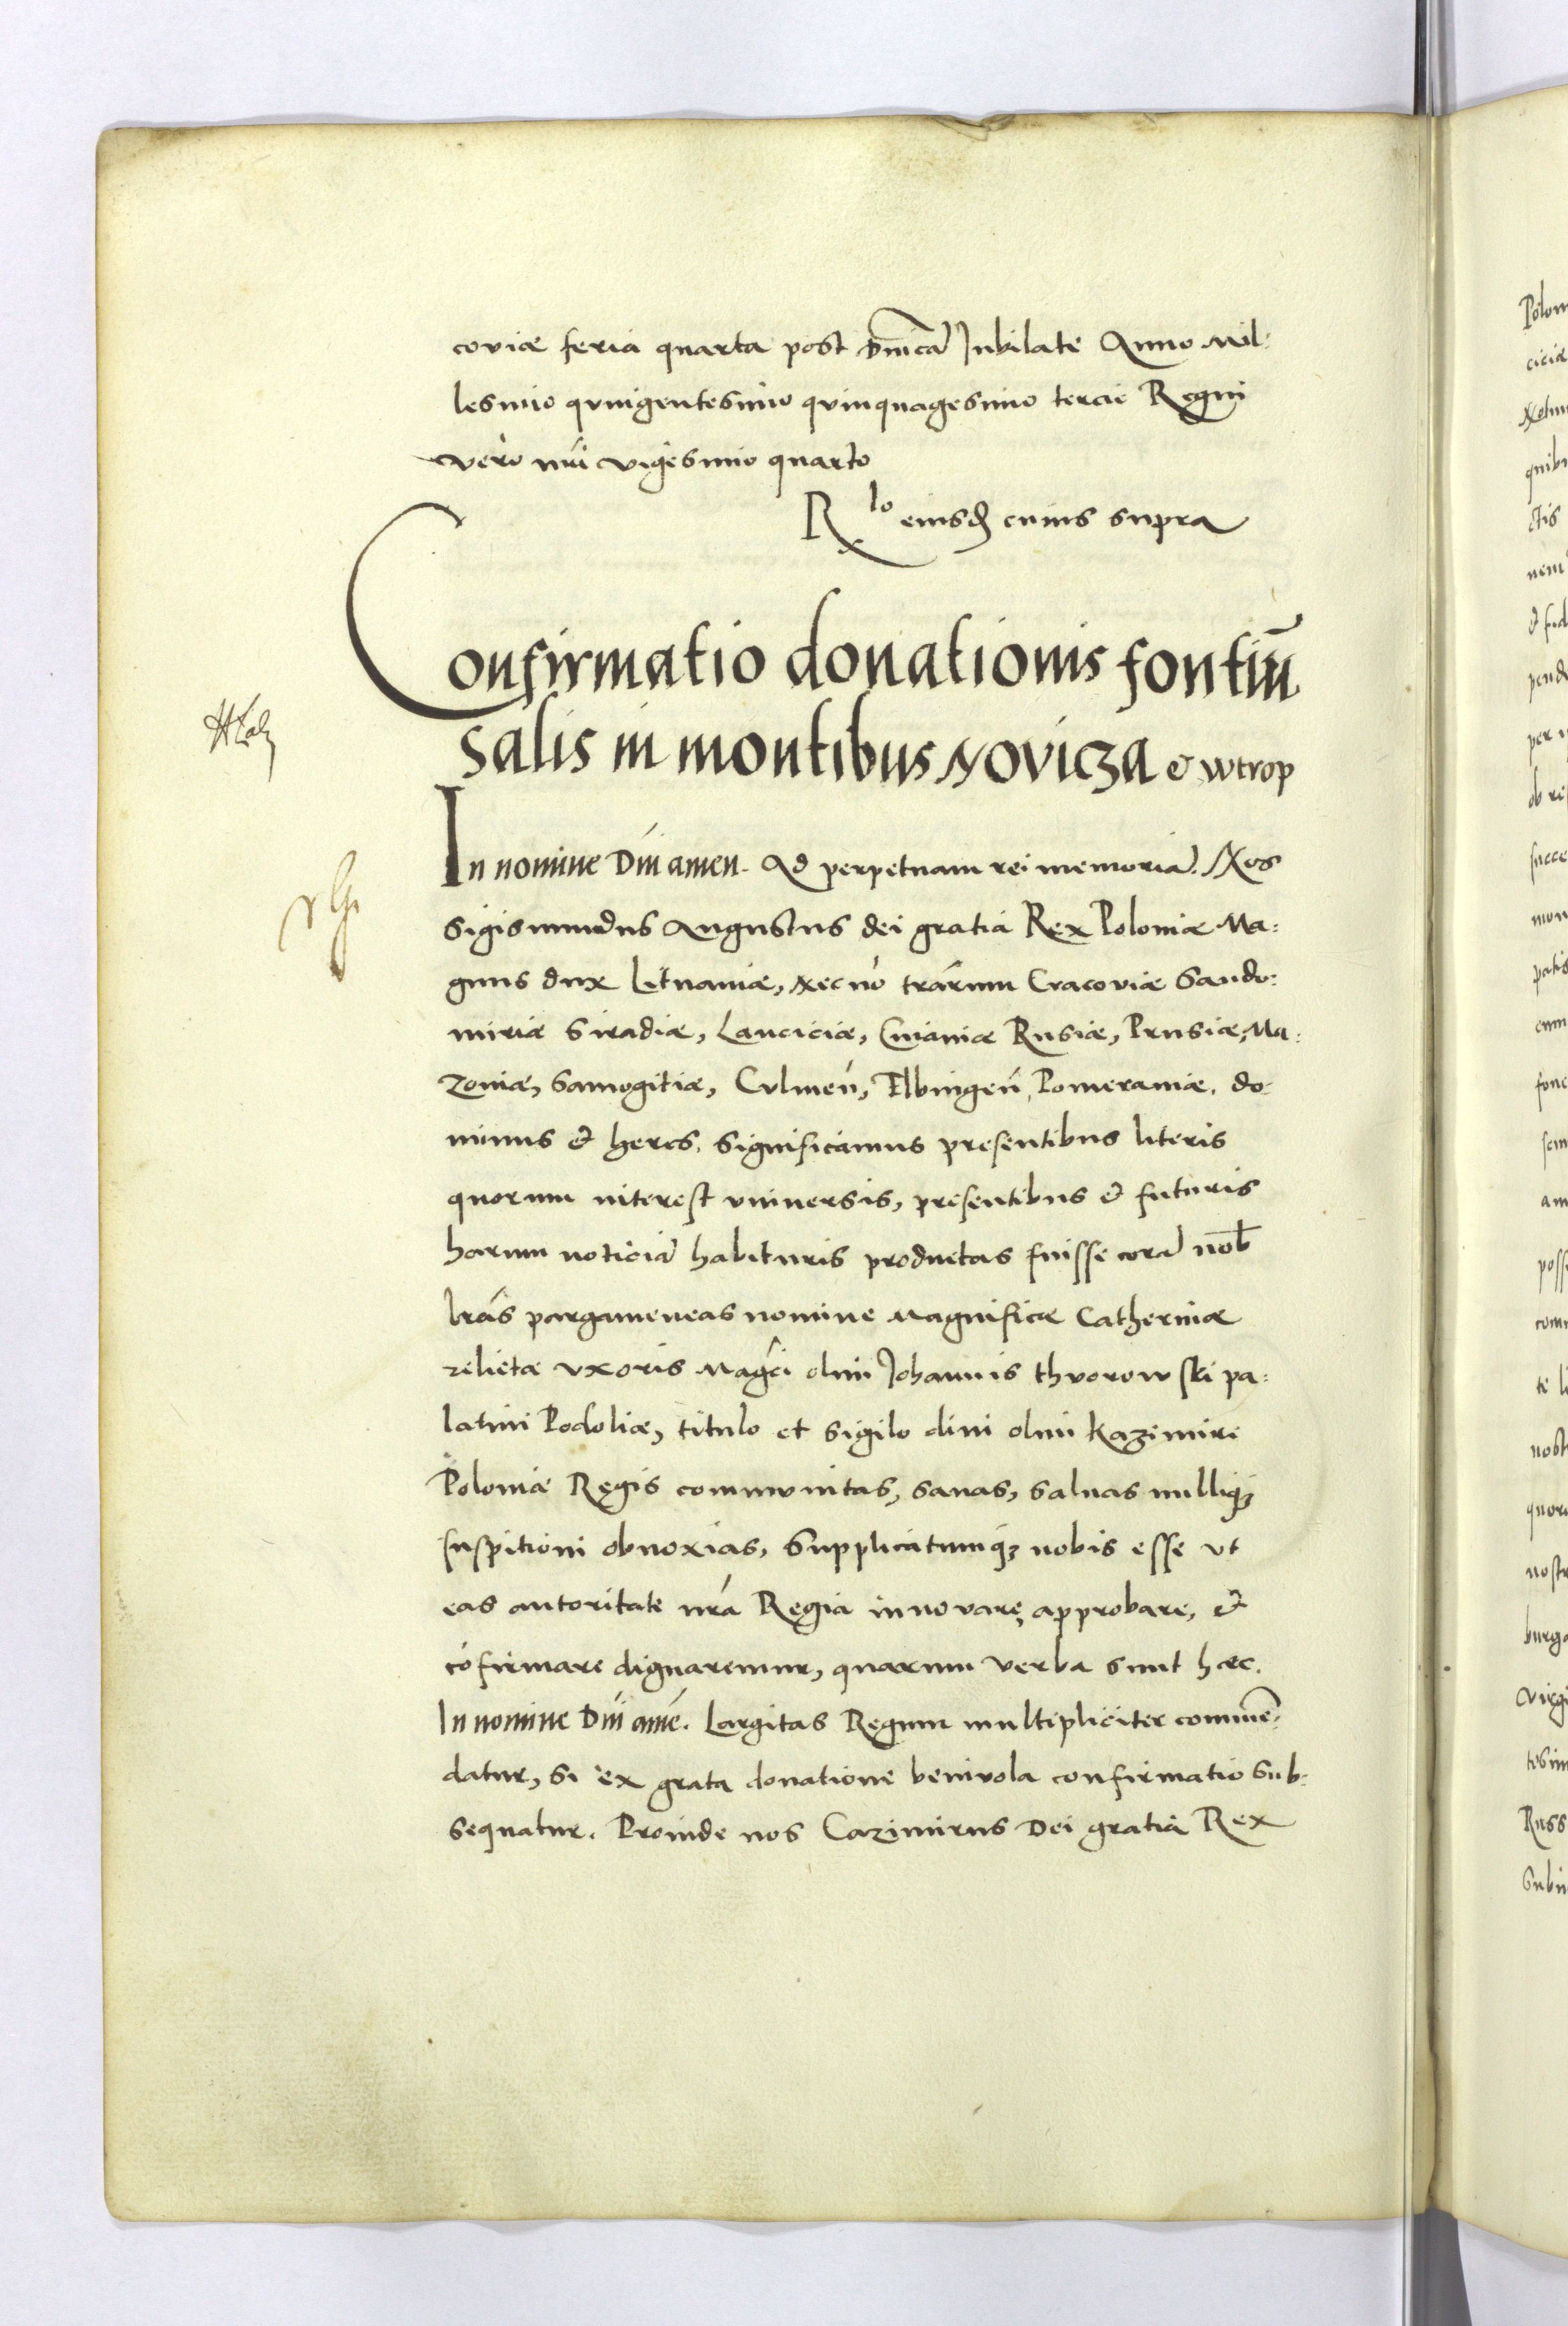 coviæ feria quarta post Dnicā Iubilate Anno Mil:
lesimo quingentesimo quinquagesimo tercie Regni
vero nri vigesimo quarto
R lo eiusd cuius supra
Confirmatio donationis fontiū
salis in montibus Novicza et wtrop
In nomine Dni amen. Ad perpetuam rei memoriā. Nos
Sigismundus Augustus dei gratia Rex Poloniæ Ma:
gnus dux Lituaniæ, Necnō trārum Cracoviæ Sando:
miriæ Siradiæ, Lanciciæ, Cuiaviæ Rusiæ, Prusiæ, Ma:
zoviæ, Samogitiæ, Culmeñ, Elbingeñ, Pomeraniæ, do:
minus et heres. Significamus presentibus literis
quorum interest universis, presentibus et futuris
harum noticiā habituris productas fuisse corā nob
lras pargameneas nomine Magnificæ Catherinæ
relictæ uxoris Magci olim Johannis thvorowski pa:
latini Podoliæ, titulo et sigilo divi olim Kazimiri
Poloniæ Regis communitas, sanas, salvas nulliq3
suspitioni obnoxias, Supplicatumq3 nobis esse ut
eas autoritate nra Regia innovare, approbare, et
cōfirmare dignaremur, quarum verba sunt hæc.
In nomine Dni amē. Largitas Regum multipliciter commē:
datur, si ex grata donatione benivola confirmatio sub:
sequatur. Proinde nos Cazimirus Dei gratia Rex